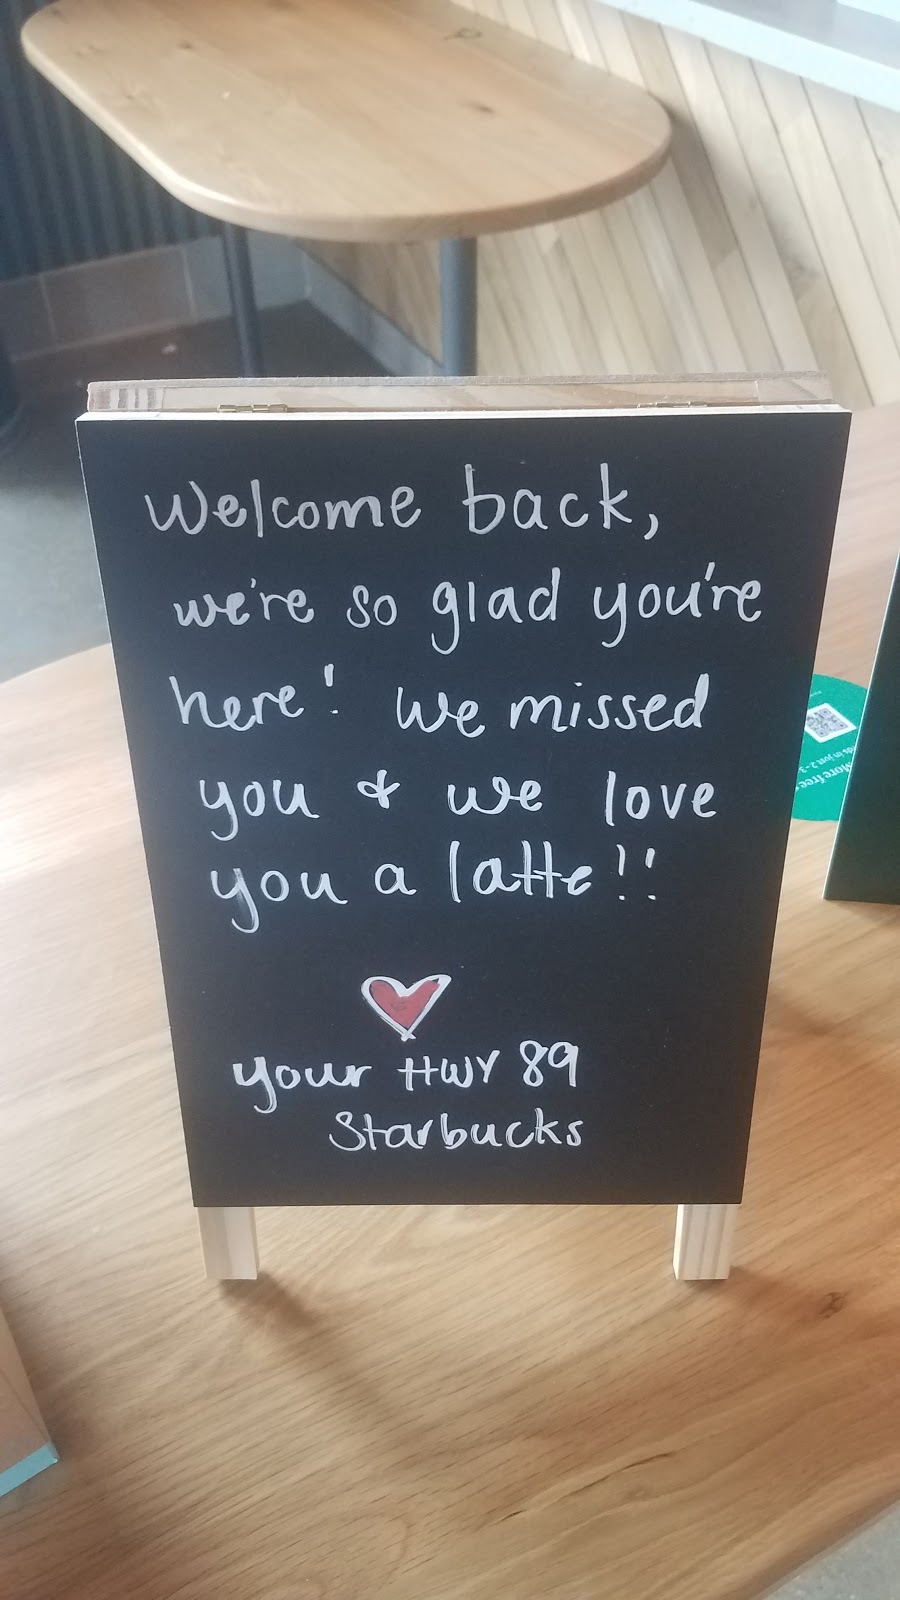 Welcome back,
we're so glad you're
here! We missed
you & we love
you a latte!!
your HWY 89
Starbucks